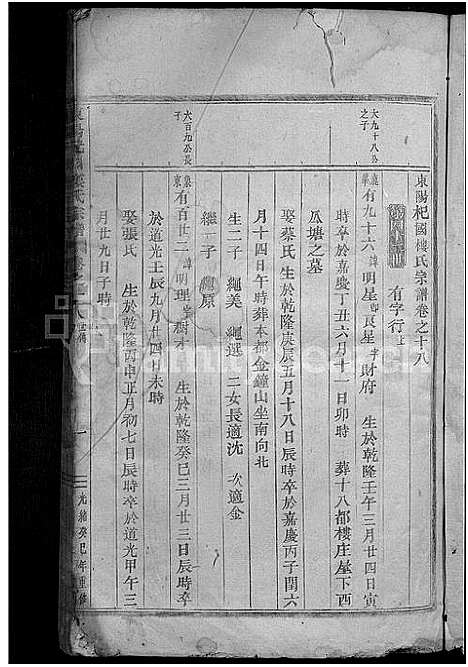 東陽杞國樓氏宗譜卷之十八
有字行上
大九十八公之子
有九十六 諱明星 良星 字財府 生於乾隆壬午三月廿四日寅
時卒於嘉慶丁丑六月十一日卯時 葬十八都樓庄屋下西
瓜塘之墓
娶蔡氏 生於乾隆庚辰五月十八日辰時卒於嘉慶丙子閏六
月十四日午時葬本都金鐘山坐南向北
生二子 繩美 繩選 二女長適沈 次適金
繼一子 繩原
大百九公長子
有百廿二 諱明理 字樹才 生於乾隆癸巳三月廿三日辰時卒
於道光壬辰九月廿四日未時
娶張氏 生於乾隆丙申正月初七日辰時卒於道光甲午三
月廿九日子時
樓氏宗譜
一
光緒癸巳年重修